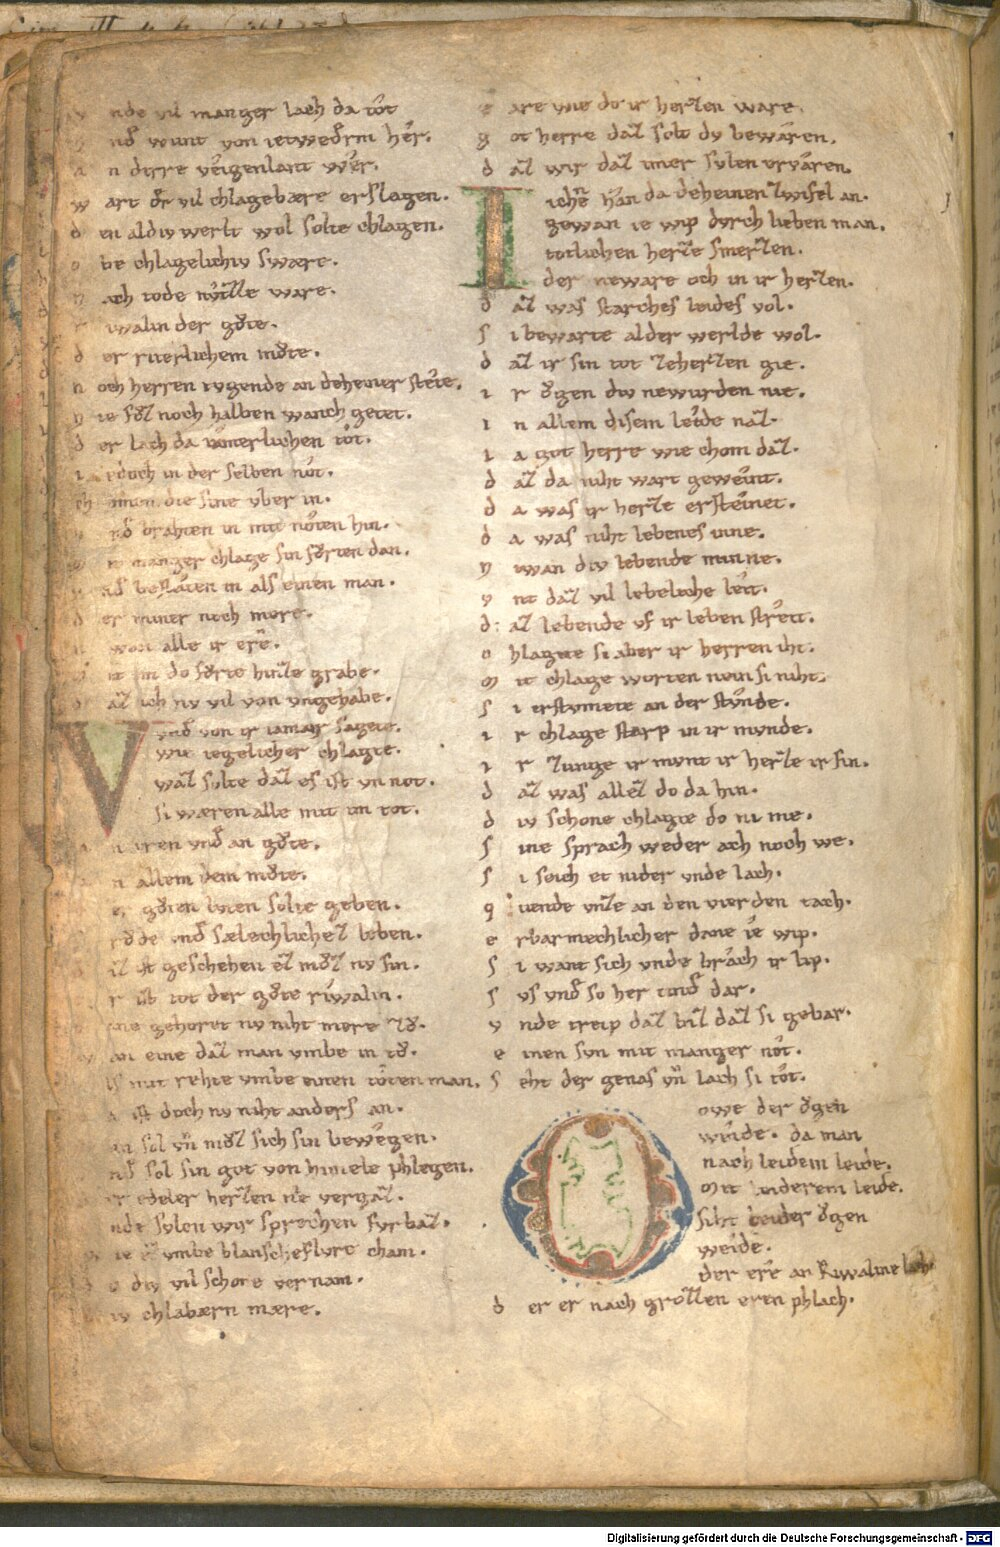 nde vil manger lach da tôt
vnd wunt von ietwedrm hêr.
a n dirre veigenlant wêr.
w art dˢ vil chlagebære erslagen.
d en aldiv werlt wol solte chlagen.
o be chlagelichiv swære.
n ach tode nvͦtzze ware.
r iwalin der gvͦte.
d er riterlichem mvͦte.
n och herren tvgende an deheiner stete.
n ie fvͦz noch halben wanch getet.
d er lach da iamerlichen tôt.
i edoch in der selben nôt.
ch omun die sine vber in.
vnd brahten in mit nôten hin.
manger chlage sin fvͦrten dan.
vnd bestaten in als einen man.
d er minner noch mere.
wan alle ir ere.
mit im do fvͦrte hinze grabe.
az ich nv vil von vngehabe.
V vnd von ir iamer sagete.
wie iegelicher chlagte.
waz solte daz es ist vn not.
si wæren alle mit im tot.
a n eren vnd an gvͦte.
a n allem dem mvͦte.
gvͦten lvten solte geben.
vnd sælechlichez leben.
z ist geschehen ez mvͦz nv sin.
r ist tot der gvͦte riwalin.
ne gehoret nv niht mere zvͦ.
w an eine daz man vmbe in tvͦ.
als mit rehte vmbe einen tôten man.
a ist doch nv niht anders an.
an sol vn mvͦz sich sin bewegen.
vnd sol sin got von himele phlegen.
r edeler herzen nie vergaz.
nde svlen wir sprechen fvrbaz.
w ie ez vmbe blanscheflvre cham.
d o div vil schone vernam.
d iv chlabærn mære.
e are wie do ir herzen ware.
g ot herre daz solt dv bewâren.
d az wir daz imer svlen ervâren.
I ichn hân da deheinen zwifel an.
gewan ie wip dvrch lieben man.
totlichen herze smerzen.
der neware och in ir herzen.
d az was starches leides vol.
s i bewarte al der werlde wol.
d az ir sin tot zeherzen gie.
i r ogen div newurden nie.
i n allem disem leide naz.
i a got herre wie chom daz.
d az da niht wart geweint.
d a was ir herze ersteinet.
d a was niht lebenes inne.
n iwan div lebende minne.
v nt daz vil lebeliche leit.
d az lebende vf ir leben streit.
c hlagete si aber ir herren iht.
m it chlage worten nein si niht.
s i erstvmete an der stvnde.
i r chlage starp in ir mvnde.
i r zunge ir mvnt ir herze ir sin.
d az was allez do da hin.
d iv schone chlagte do ni me.
s ine sprach weder ach noch we.
s i seich et nider vnde lach.
q uelende vnze an den vierden tach.
e rbarmechlicher danne ie wip.
s i want sich vnde brach ir lip.
s vs vnd so her vnd dar.
v nde treip daz biz daz si gebar.
e inen svn mit manger nôt.
s eht der genas vn lach si tôt.
O owe der ogen
weide. da man
nach leidem leide.
mit leiderem leide.
siht leider ogen
weide.
der ere an Riwaline lach.
d er er nach grozzen eren phlach.
Digitalisierung gefördert durch die Deutsche Forschungsgemeinschaft - DFG